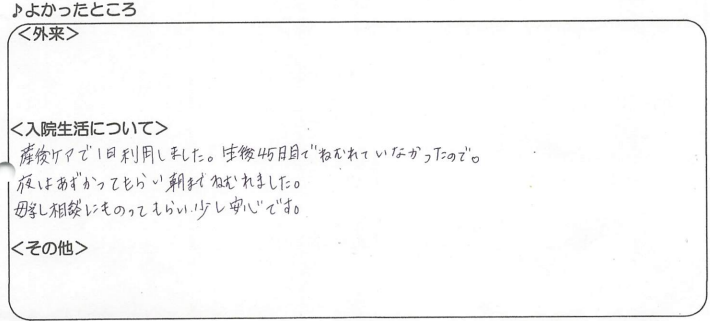 ♪よかったところ
<外来>
<入院生活について>
産後ケアで1日利用しました。生後45日目でねむれていなかったので。
夜はあずかってもらい朝までねむれました。
母乳相談にものってもらい少し安心です。
<その他>